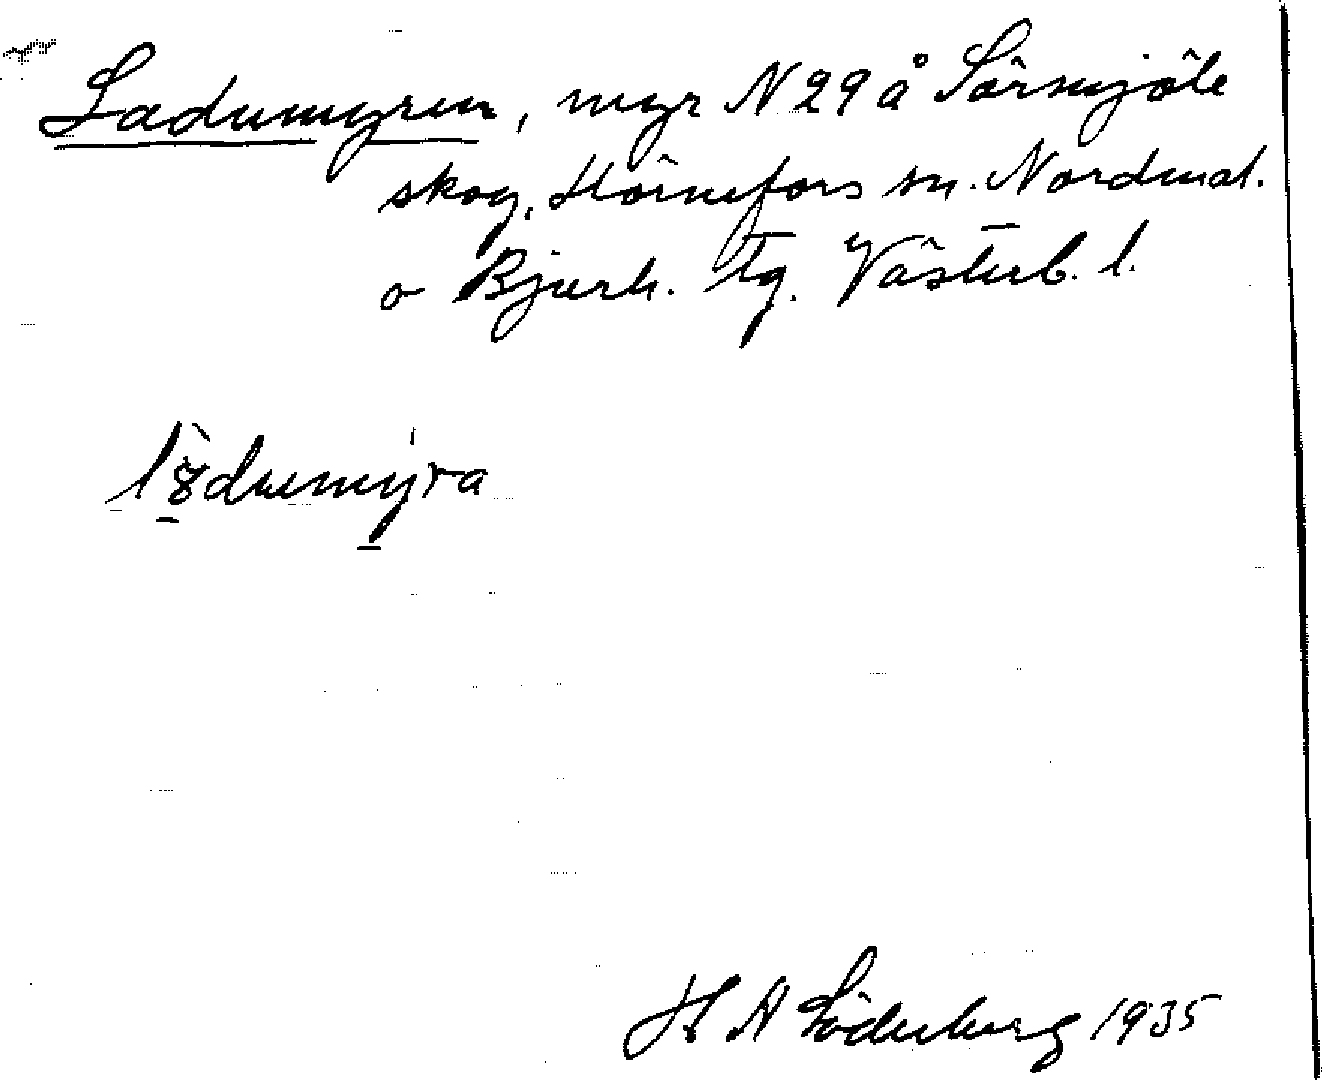 Ladumyren, myr N 29 å Sörmjöle
skog, Hörnefors sn. Nordmal.
o Bjurh. tg. Västerb. l.
lədumyra
H A Söderberg 1935